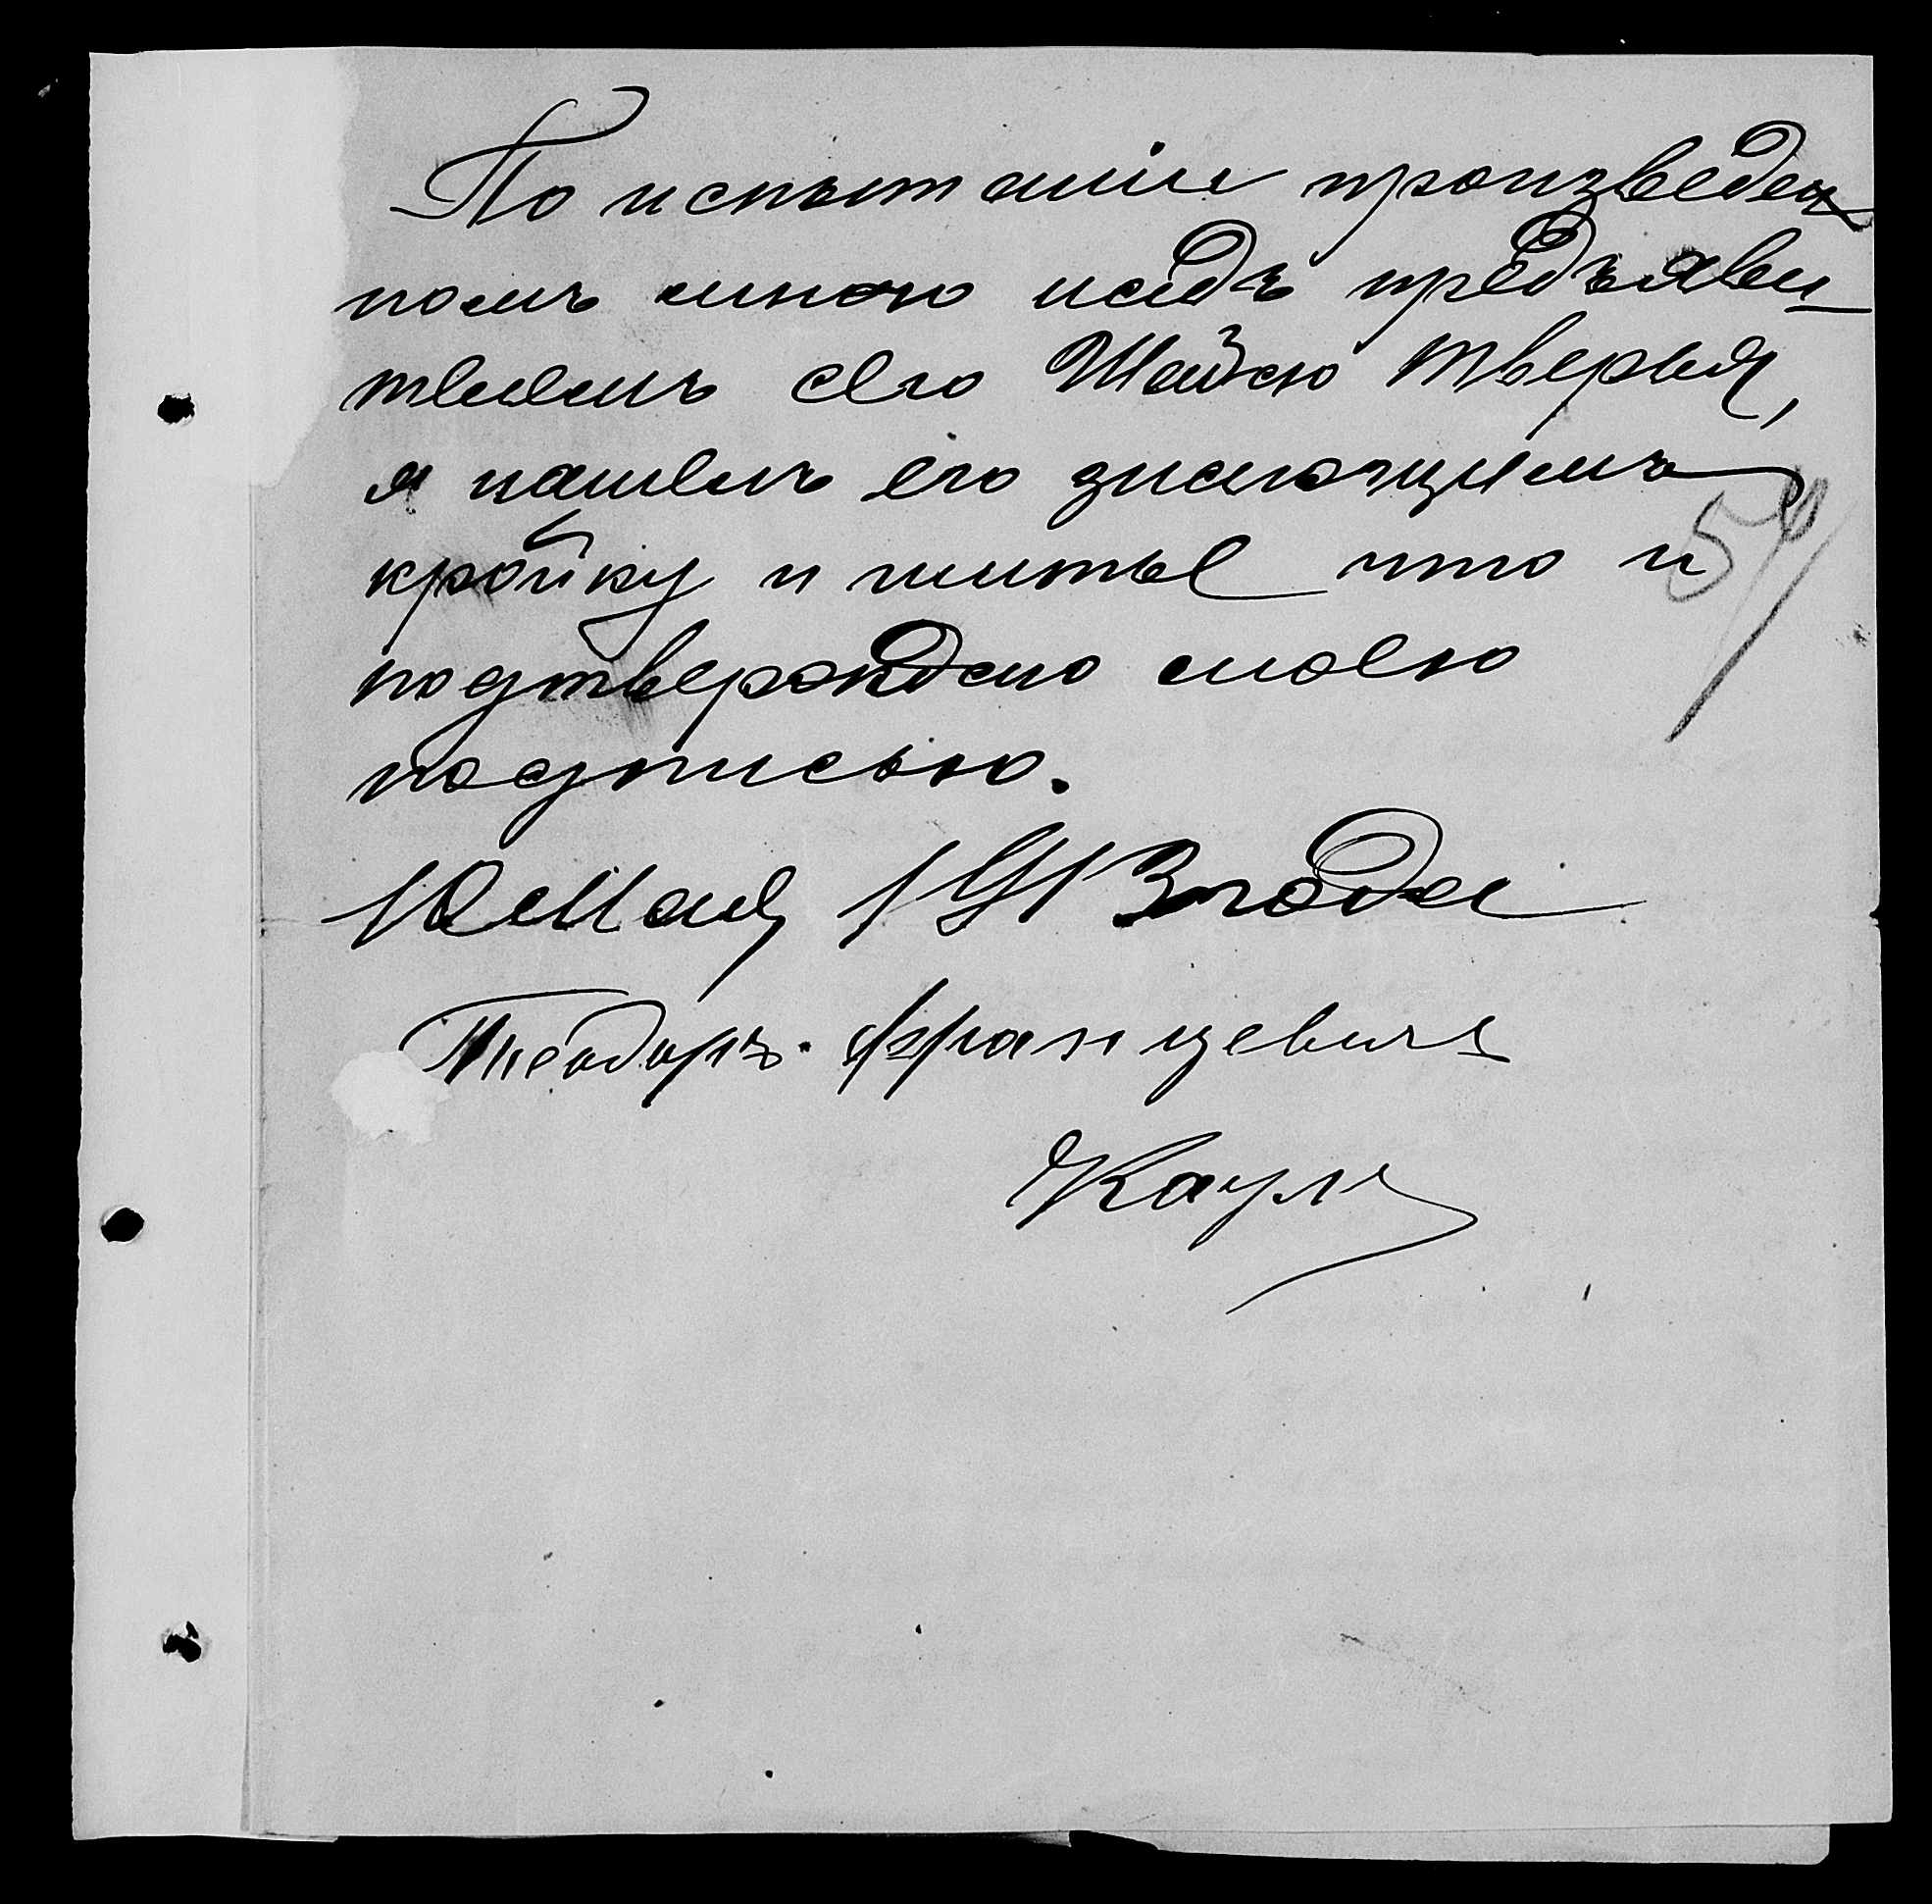 По испытаніи произведен
номъ мною надъ предъяви_
телемъ сего Шайею Тверья,
я нашелъ его знающимъ
кройку и шитье что и
подтверждаю моею
подписью.
10 Мая 1913 года
Теодоръ Францевичъ
Кауль